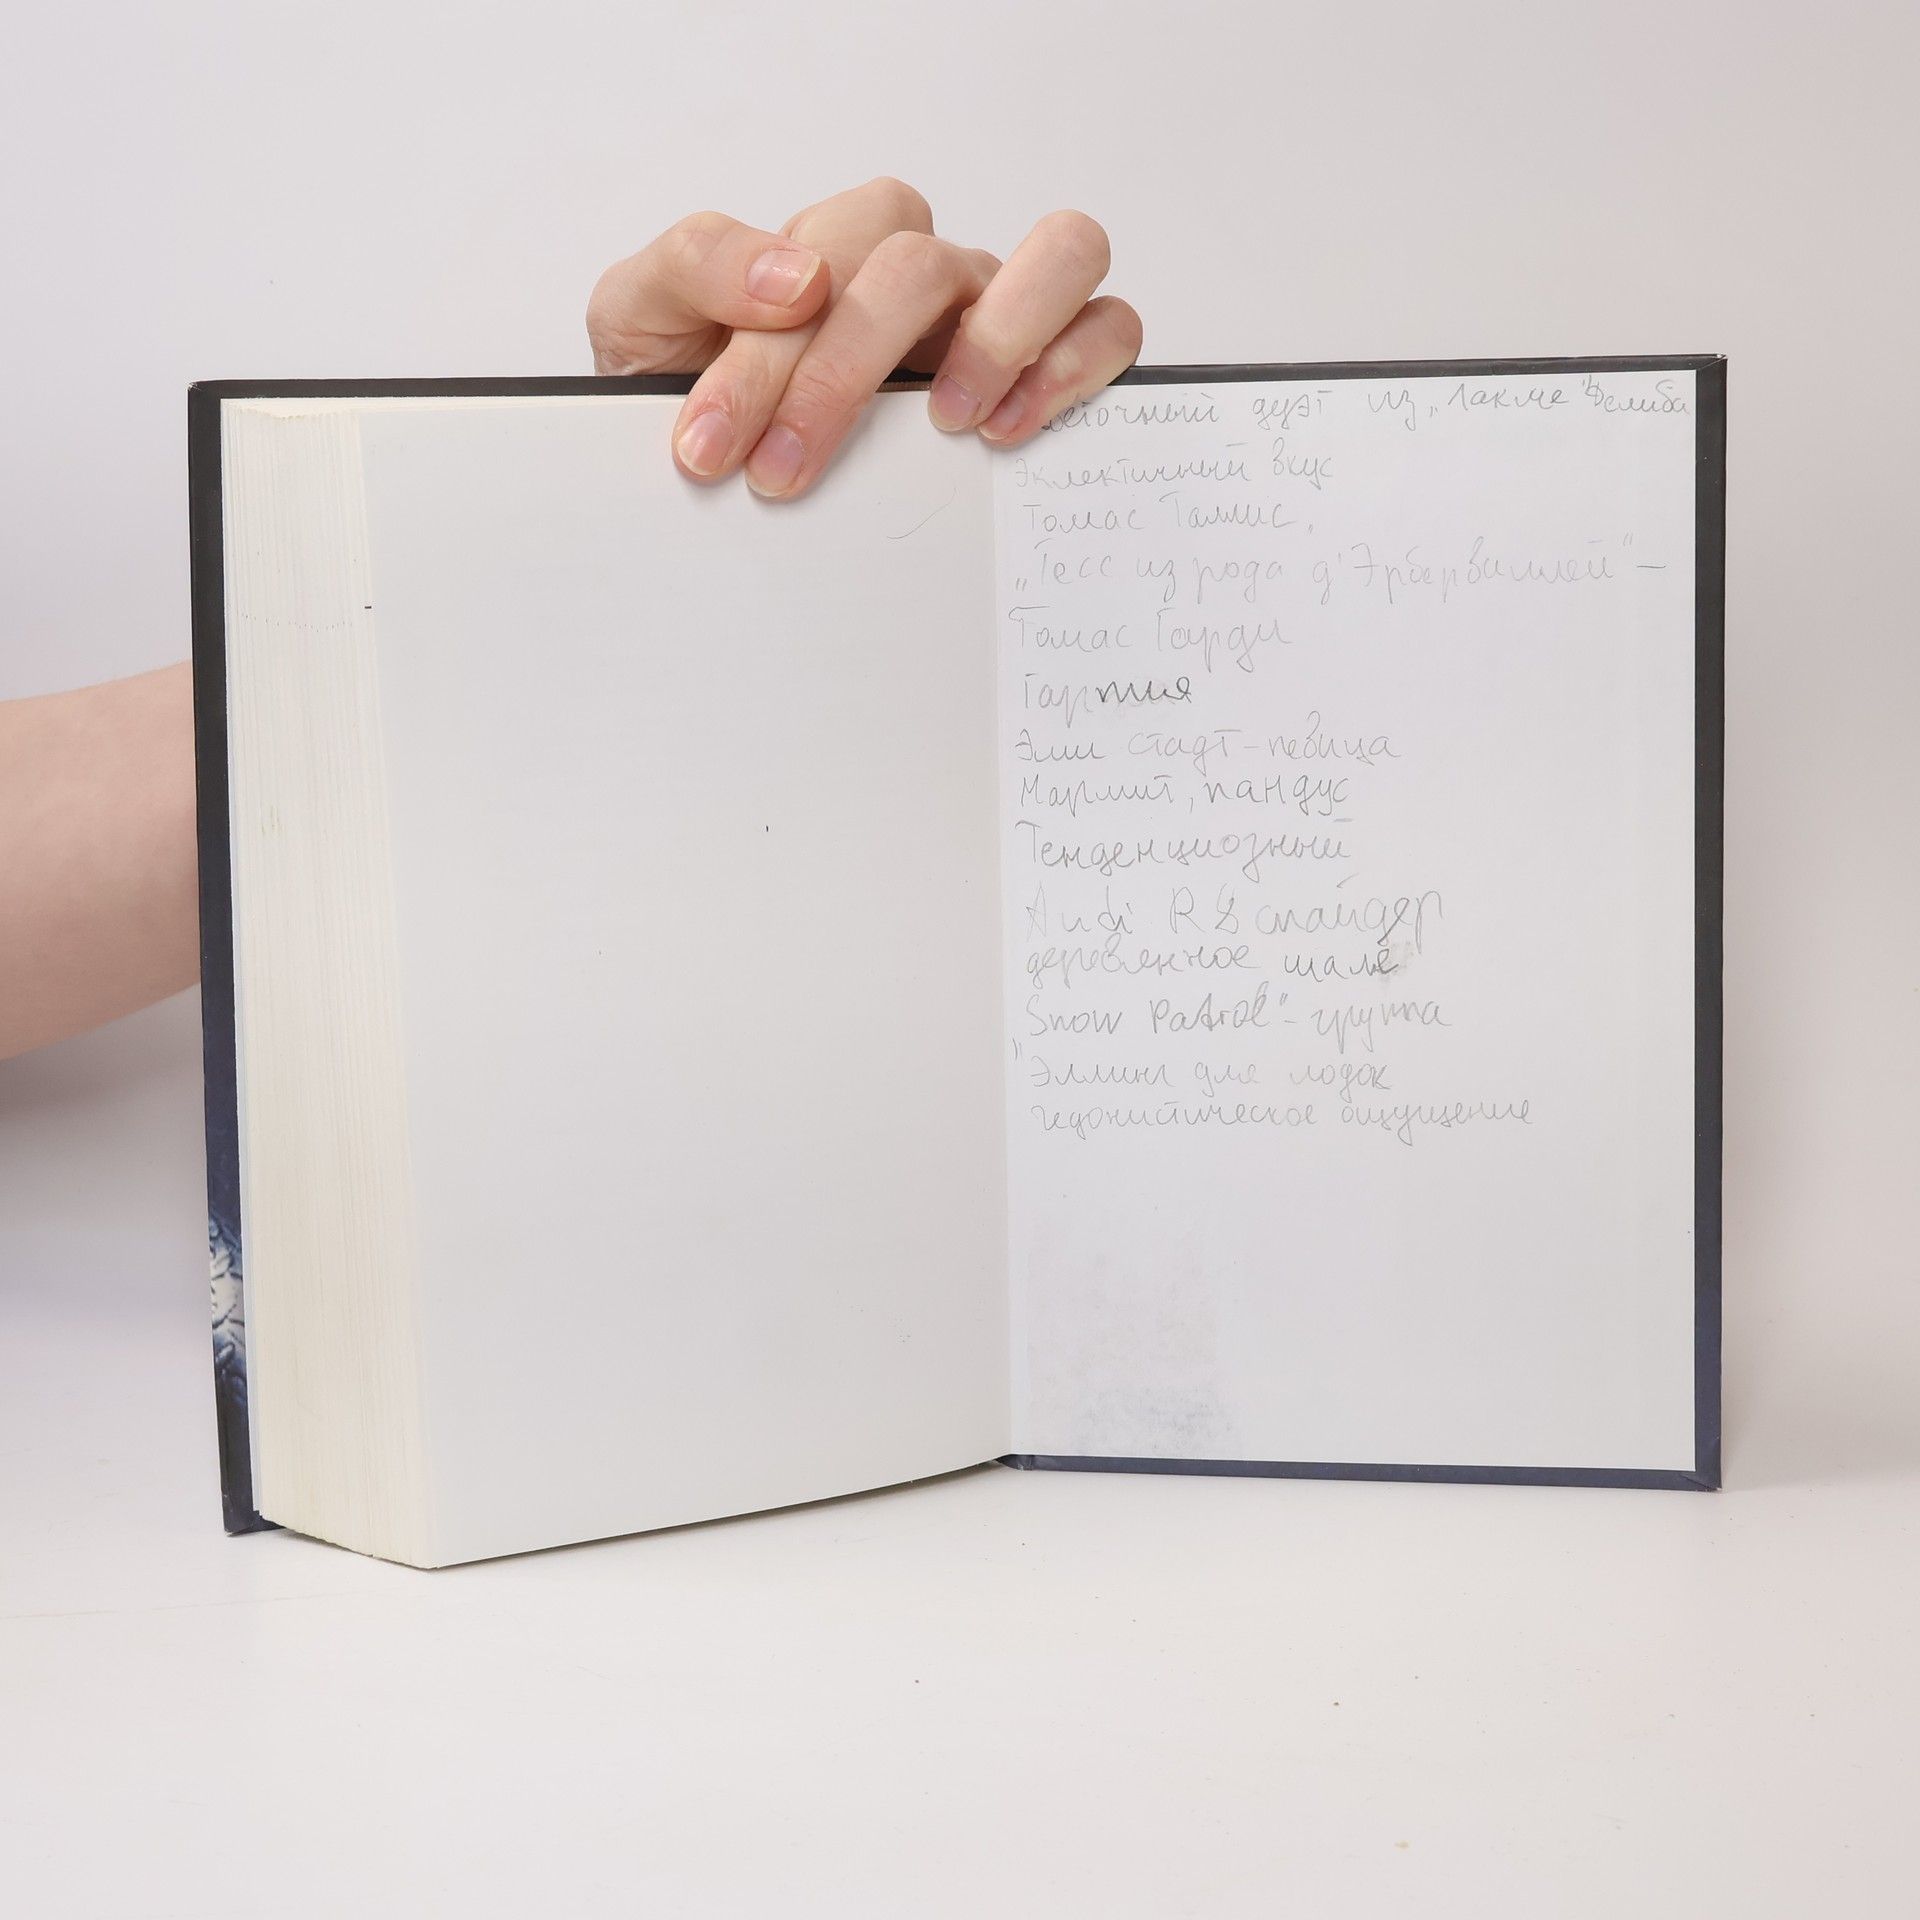 цветочный дуэт из „Лакме" Делиба
Эклектичный вкус
Томас Таллис,
„Тесс из рода д'Эрбервиллей" –
Томас Гарди
Гарпия
Эми стадт – певица
Мармит, пандус
Тенденциозный
Audi R8 спайдер
деревянное шале
"Snow Patrol" – группа
Эллинг для лодок
гедонистическое ощущение